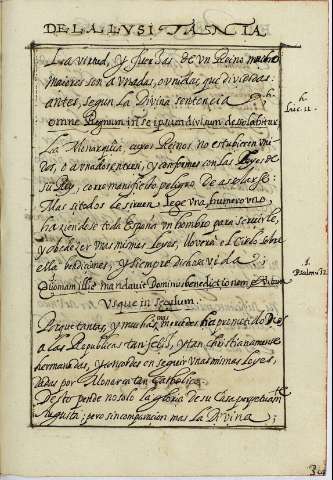 DE LA LUSITANIA
La virtud, y fuerzas de un Reino mucho
maiores son aunadas, o unidas, que divididas
antes, segun la Divina sentencia
omne Regnum in se ipsum divisum desolabitur
h
Luc. 11.
La Monarquia, cuyos Reinos no estubieren uni
dos, o aunados entre si, y conformes con las Leyes de
su Rey, corre manifiesto peligro de asolarse:
Mas si todos le sirven Lege una, numero uno,
haziendose toda España un hombre para servirle,
y obedezer unas mismas Leyes, lloverá el Cielo sobre
ella bendiciones, y siempre dichosa vida
Quoniam illic mandavit Dominus benedictionem, et vitam
Usque in seculum.
Psalmo 132
Porque tantas, y muchas mas mercedes ha prometido Dios
a las Republicas tan fieles, y tan christianamente
hermanadas, y concordes en seguir unas mismas leyes,
dadas por Monarca tan Catholico.
Desto pende no solo la gloria de su Casa perpetuamte
Augusta; pero sin comparacion mas la Divina;